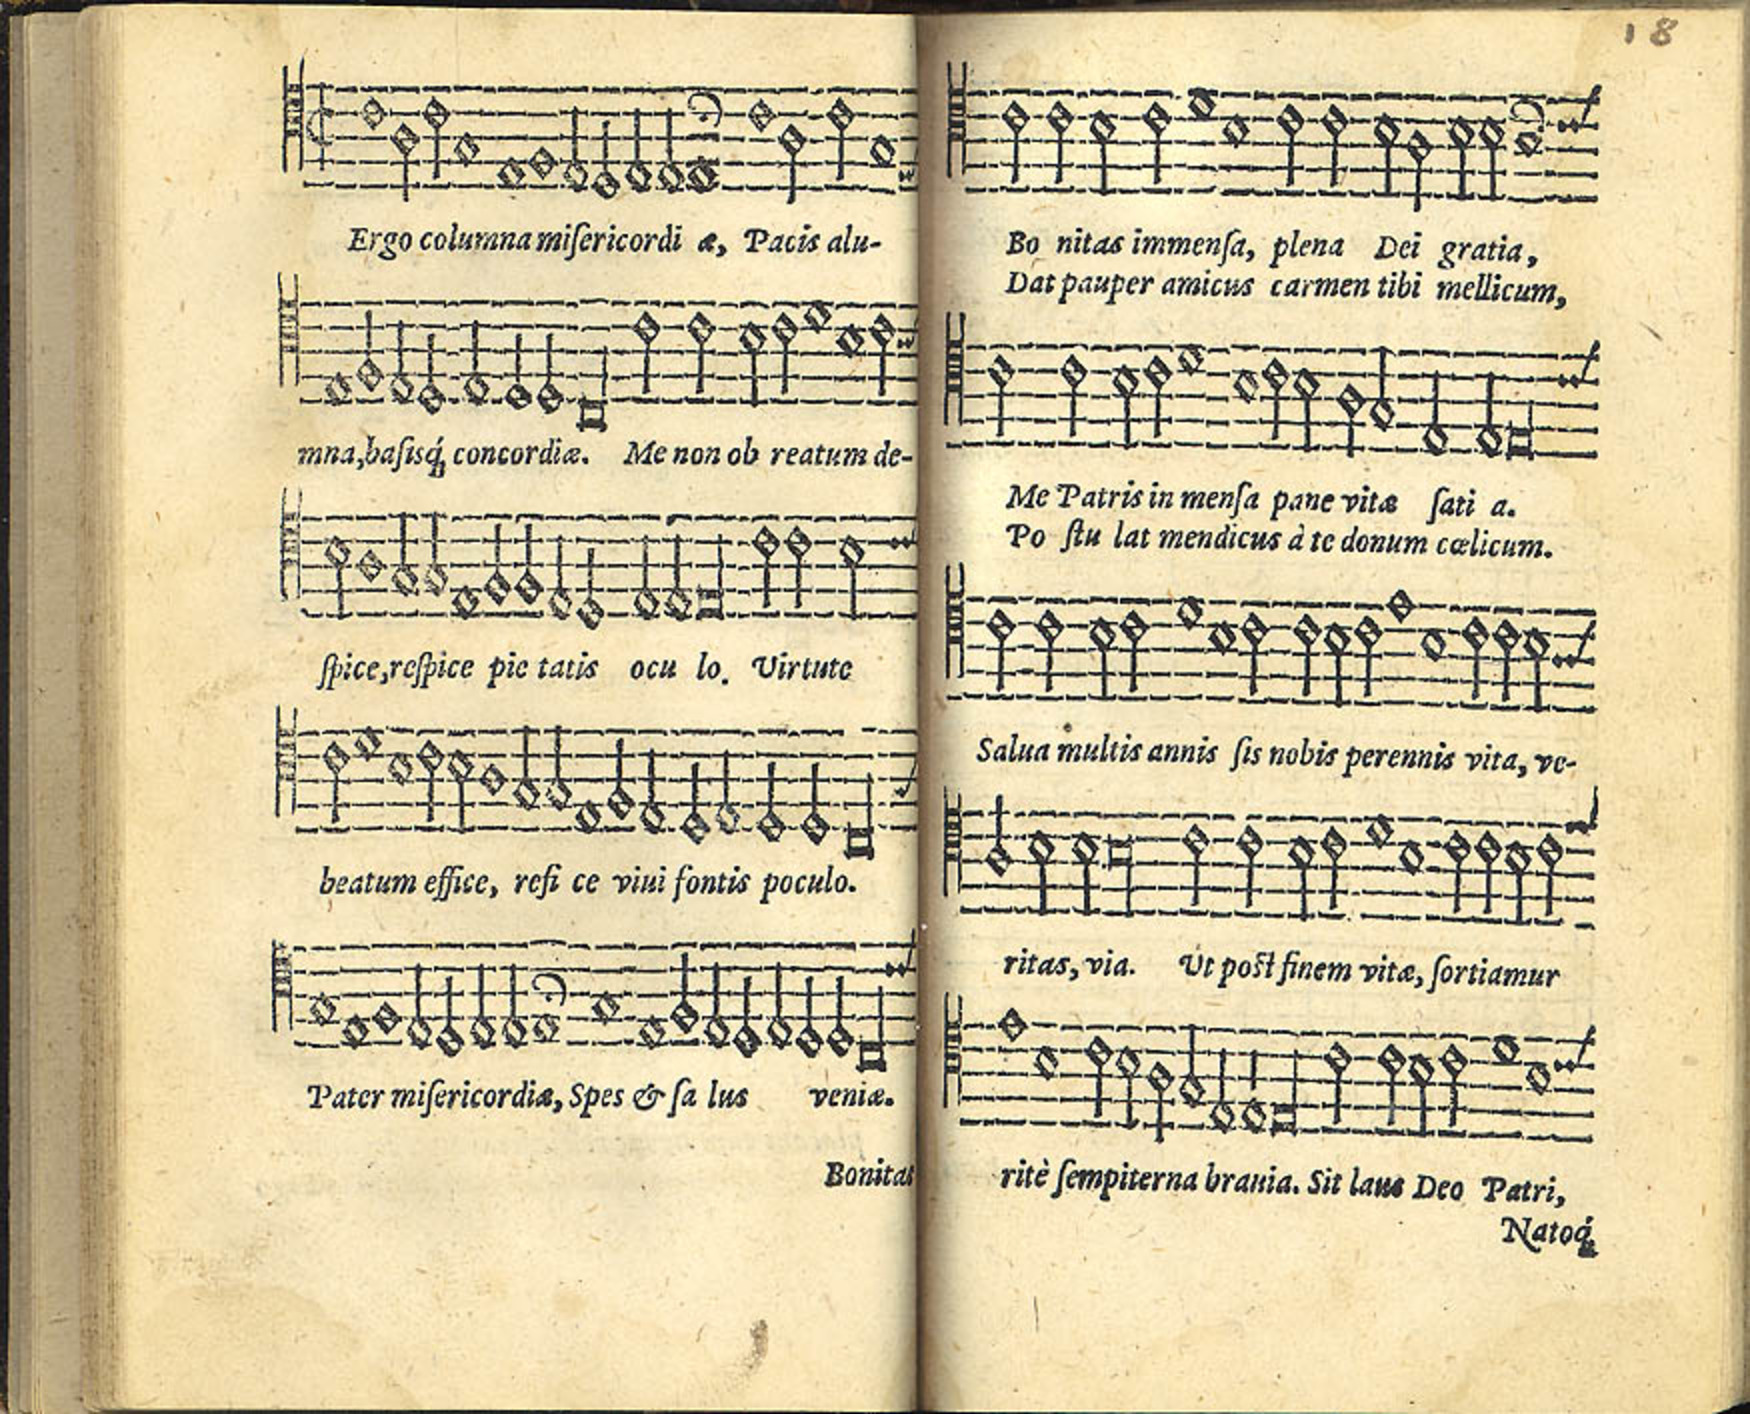 Ergo columna miſericordi æ, Pacis alu-
mna, baſisq́; concordiæ. Me non ob reatum de-
ſpice, reſpice pie tatis ocu lo. Virtute
beatum effice, refi ce viui fontis poculo.
Pater miſericordiæ, Spes & ſa lus veniæ.
Bonitas
18
Bo nitas immenſa, plena Dei gratia,
Dat pauper amicus carmen tibi mellicum,
Me Patris in menſa pane vitæ ſati a.
Po ſtu lat mendicus à te donum cœlicum.
Salua multis annis ſis nobis perennis vita, ve-
ritas, via. Ut poſt finem vitæ, ſortiamur
ritè ſempiterna brauia. Sit laus Deo Patri,
Natoq́;